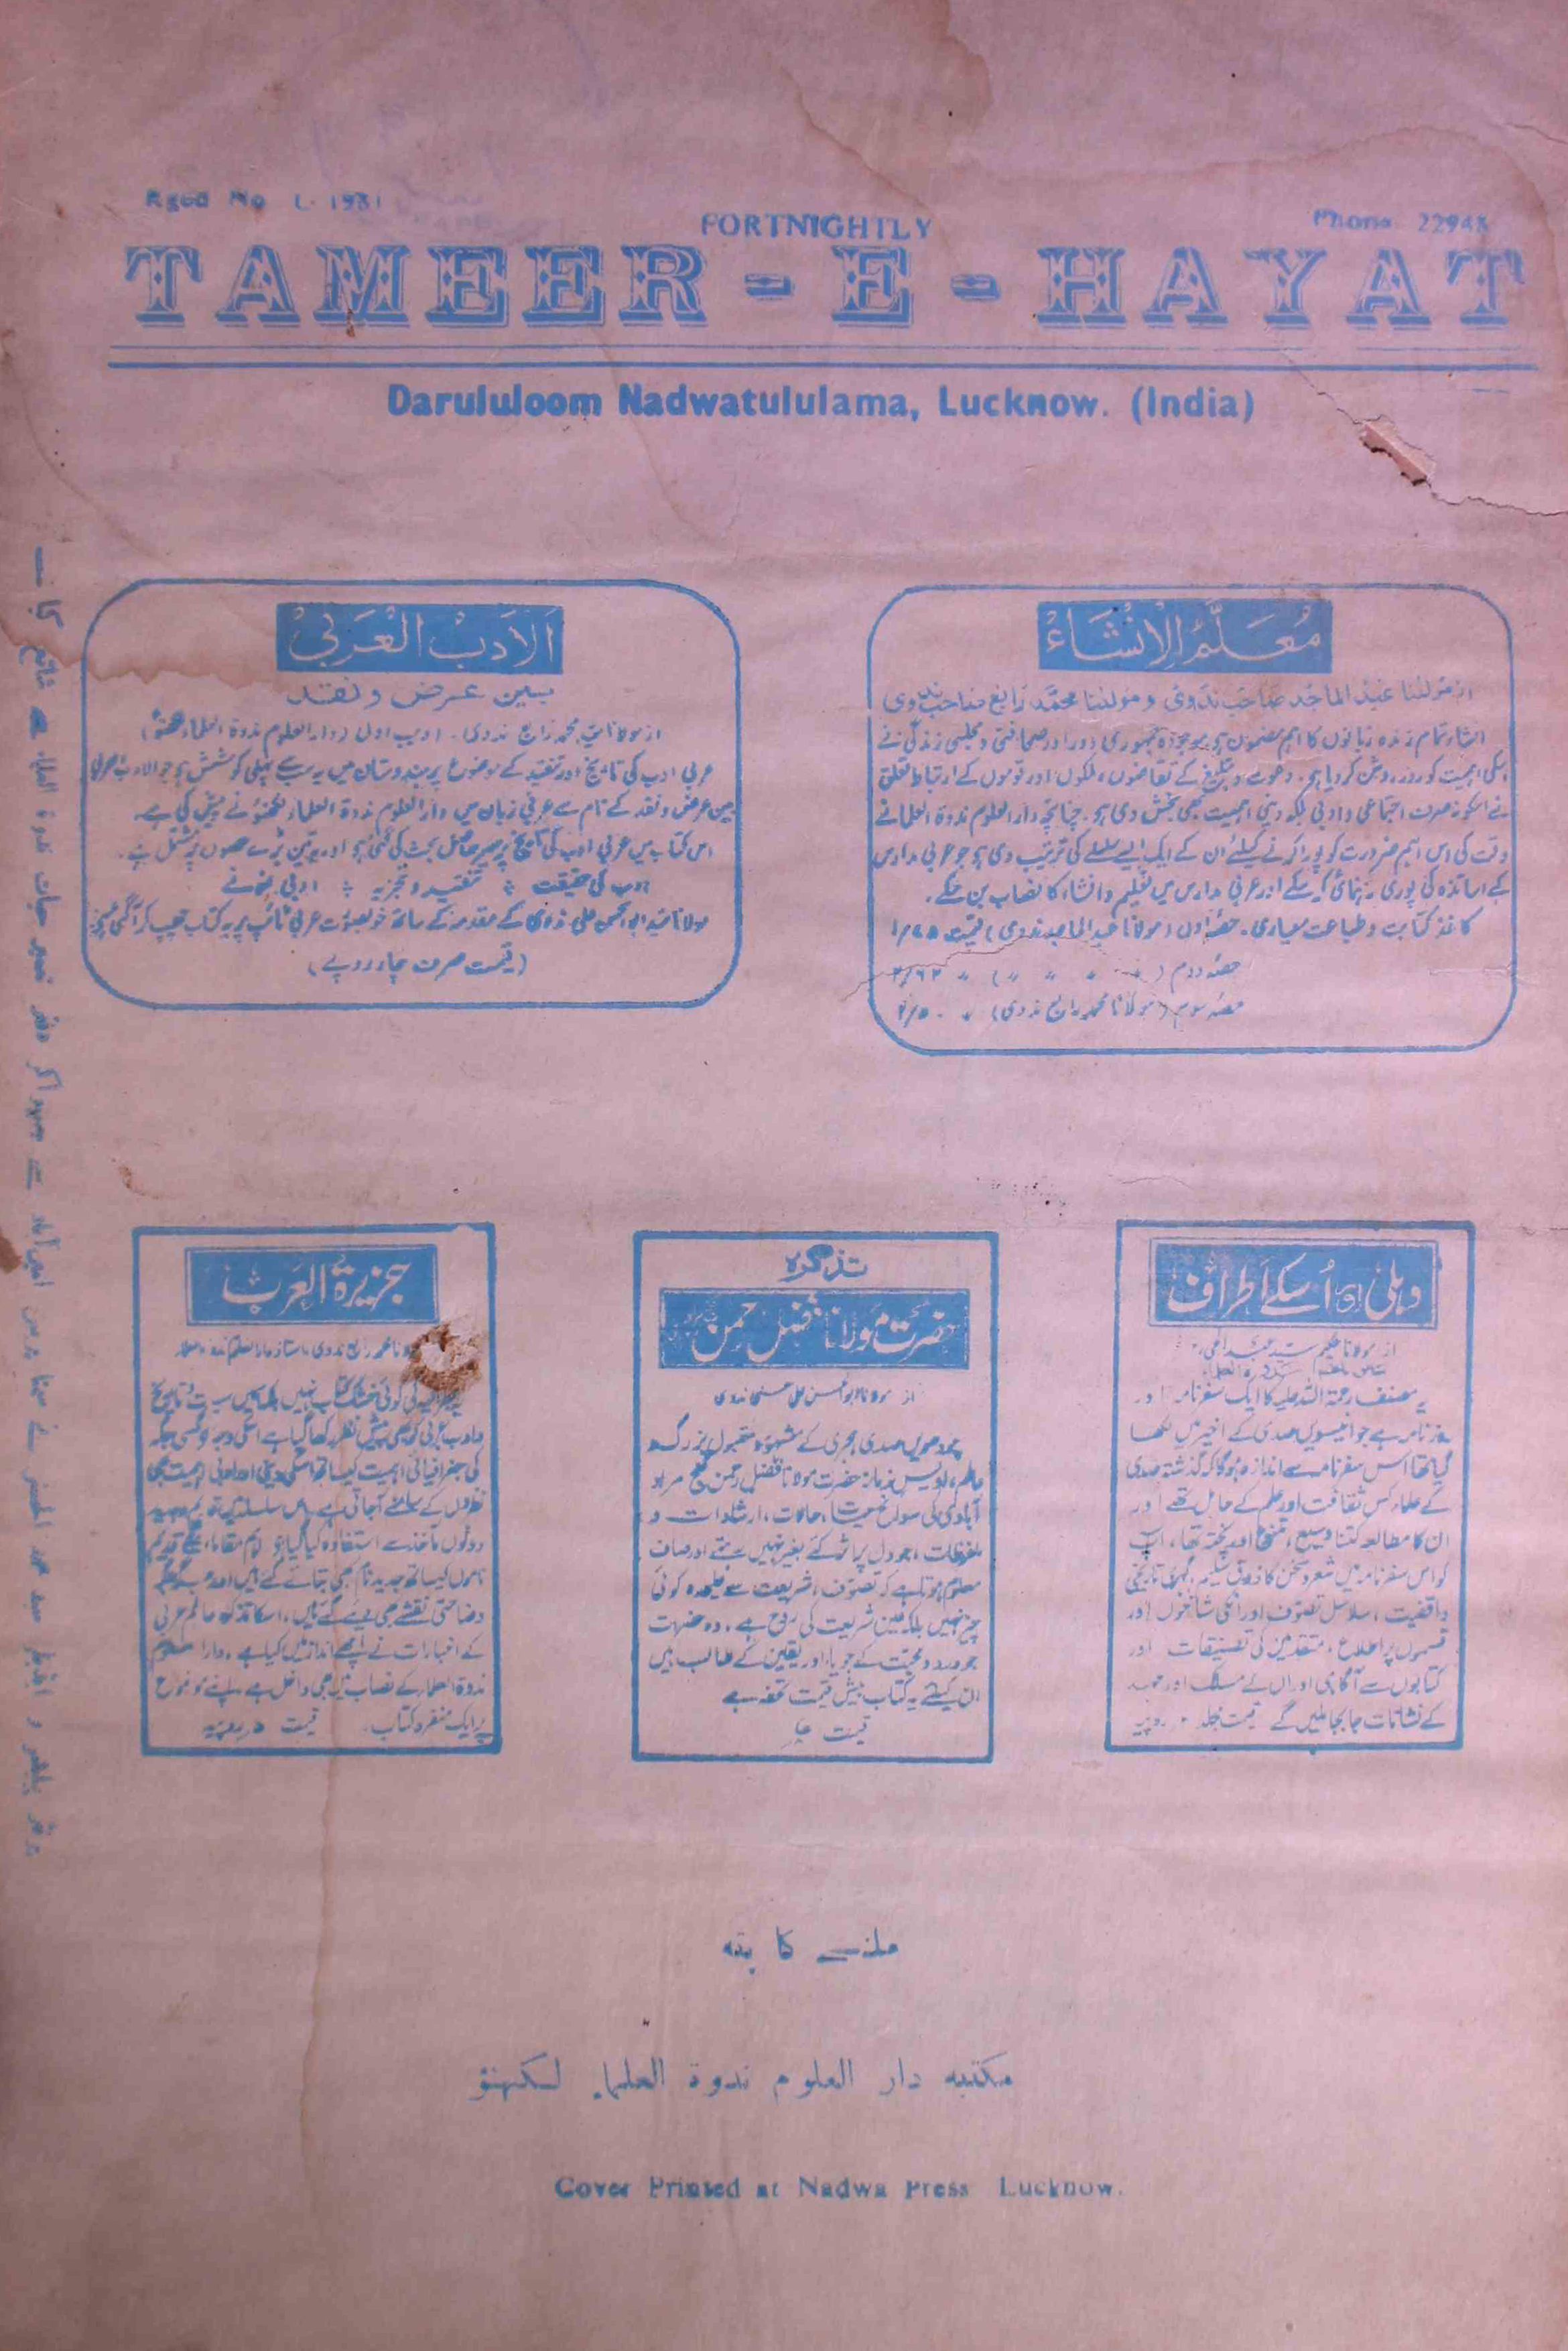 Regd No L. 1981
FORTNIGHTLY
Phone 22948
TAMEER-E-HAYAT
Darululoom Nadwatululama, Lucknow. (India)
مُعَلِّمُ الْاِنْشَاءْ
از مولٰنا عبد الماجد صاحب ندوی و مولٰنا محمد رابع صاحب ندوی
انشاء تمام زندہ زبانوں کا اہم مضمون ہی موجودہ جمہوری دور اور صحافتی و مجلسی زندگی نے
اسکی اہمیت کو روز روشن کردیا ہی۔ دعوت و تبلیغ کے تقاضوں، ملکوں اور قوموں کے ارتباط و تعلق
نے اسکو نہ صرف اجتماعی و ادبی بلکہ دینی اہمیت بھی بخش دی ہی۔ چنانچہ دار العلوم ندوۃ العلما نے
وقت کی اس اہم ضرورت کو پورا کرنے کیلئے ان کے ایک ایسے سلسلے کی ترتیب دی ہی جو عربی مدارس
کے اساتذہ کی پوری رہنمائی کرسکے اور عربی مدارس میں تعلیم و انشاء کا نصاب بن سکے۔
کاغذ کتابت و طباعت معیاری۔ حصہ اول (مولانا عبد الماجد ندوی) قیمت
حصہ دوم ( 〃 〃 〃 ) 〃
حصہ سوم (مولانا محمد رابع ندوی) 〃
اَلاَدَبُ الْعَرَبِيْ
بين عرض و نقد
از مولانا سید محمد رابع ندوی۔ ادیب اول (دار العلوم ندوۃ العلماء لکھنؤ)
عربی ادب کی تاریخ اور تنقید کے موضوع پر ہندوستان میں یہ سب سے پہلی کوشش ہی جو الادب العربی
بین عرض و نقد کے نام سے عربی زبان میں دار العلوم ندوۃ العلماء لکھنؤ نے پیش کی ہے۔
اس کتاب میں عربی ادب کی تاریخ پر سیر حاصل بحث کی گئی ہو اور یہ تین بڑے حصوں پر مشتمل ہے۔
ادب کی حقیقت ÷ تنقید و تجزیہ ÷ ادبی نمونے
مولانا سید ابو الحسن علی ندوی کے مقدمہ کے ساتھ خوبصورت عربی ٹائپ پر یہ کتاب چھپ کر آگئی ہی
(قیمت صرف چار روپے)
دہلی اور اُسکے اَطراف
از مولانا حکیم سید عبد الحی
سابق ناظم ندوۃ العلماء
یہ مصنف رحمۃ اللہ علیہ کا ایک سفرنامہ اور
روزنامہ ہے جو انیسویں صدی کے اخیر میں لکھا
گیا تھا اس سفرنامہ سے اندازہ ہوگا کہ گذشتہ صدی
کے علماء کس ثقافت اور علم کے حامل تھے اور
ان کا مطالعہ کتنا وسیع، متنوع اور پختہ تھا، آپ
کو اس سفرنامہ میں شعر و سخن کا ذوق سلیم، گہری تاریخی
واقفیت، سلاسل تصوف اور انکی شاخوں اور
قسموں پر اطلاع، متقدمین کی تصنیفات اور
کتابوں سے آگاہی اور ان کے مسلک اور
کے نشانات جا بجا ملیں گے قیمت مجلد روپیہ
تذکرہ
حضرت مولانا فضل رحمن
از مولانا ابو الحسن علی حسنی ندوی
چودھویں صدی ہجری کے مشہور و مقبول بزرگ
عالم، اویس زمانہ حضرت مولانا فضل رحمن گنج مراد
آبادی کی سوانح حیات، حالات، ارشادات و
ملفوظات، جو دل پر اثر کئے بغیر نہیں رہتے اور صاف
معلوم ہوتا ہے کہ تصوف، شریعت سے علیحدہ کوئی
چیز نہیں بلکہ عین شریعت کی روح ہے، وہ حضرات
جو درد و محبت کے جویا اور یقین کے طالب ہیں
ان کیلئے یہ کتاب بیش قیمت تحفہ ہے
قیمت
جزیرۃ العرب
مولانا محمد رابع ندوی، استاذ دار العلوم ندوۃ العلماء
یہ جغرافیہ کی کوئی خشک کتاب نہیں بلکہ اس میں سیرت و تاریخ
و ادب عربی کو بھی پیش نظر رکھا گیا ہے اسکی وجہ سے کسی جگہ
کی جغرافیائی اہمیت کیساتھ اسکی دینی اور ادبی اہمیت بھی
نظروں کے سامنے آجاتی ہے، اس سلسلہ میں قدیم و جدید
دونوں مآخذ سے استفادہ کیا گیا ہو اہم مقامات کے قدیم
ناموں کیساتھ جدید نام بھی بتائے گئے ہیں اور جگہ جگہ
وضاحتی نقشے بھی دیئے گئے ہیں، اسکا تذکرہ عالم عربی
کے اخبارات نے اچھے انداز میں کیا ہے۔ دار العلوم
ندوۃ العلماء کے نصاب میں بھی داخل ہے، اپنے موضوع
پر ایک منفرد کتاب۔ قیمت
ملنے کا پتہ
مکتبہ دار العلوم ندوۃ العلماء لکھنؤ
Cover Printed at Nadwa Press Lucknow.
پرنٹر پبلشر و ایڈیٹر سید محمد الحسنی نے پریس امین آباد سے چھپوا کر دفتر تعمیر حیات ندوۃ العلماء سے شائع کیا —